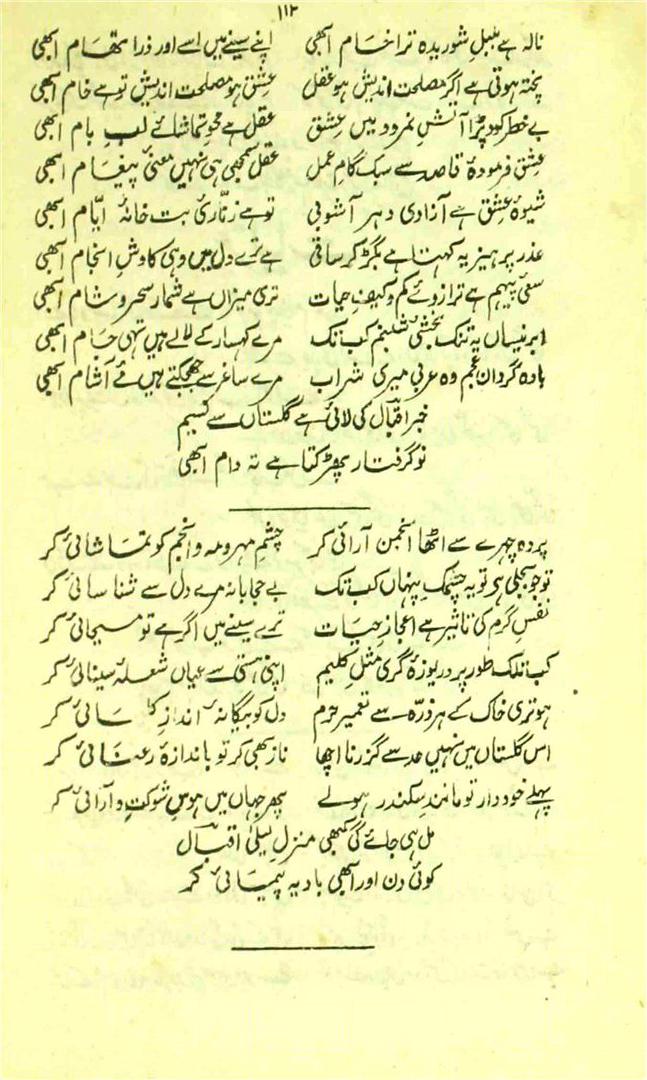 ۱۱۲
نالہ ہے بلبلِ شوریدہ ترا خام ابھی اپنے سینے میں اسے اور ذرا تھام ابھی
پختہ ہوتی ہے اگر مصلحت اندیش ہو عقل عشق ہو مصلحت اندیش تو ہے خام ابھی
بے خطر کود پڑا آتشِ نمرود میں عشق عقل ہے محوِ تماشائے لبِ بام ابھی
عشق فرمودۂ قاصد سے سبک گامِ عمل عقل سمجھی ہی نہیں معنیٔ پیغام ابھی
شیوۂ عشق ہے آزادی و دہر آشوبی تو ہے زناریٔ بت خانۂ ایام ابھی
عذرِ پرہیز پہ کہتا ہے بگڑ کر ساقی ہے ترے دل میں وہی کاوشِ انجام ابھی
سعیٔ پیہم ہے ترازوئے کم و کیفِ حیات تری میزاں ہے شمارِ سحر و شام ابھی
ابرِ نیساں یہ تنک بخشیٔ شبنم کب تک مرے کہسار کے لالے ہیں تہی جام ابھی
بادہ گردانِ عجم وہ عربی میری شراب مرے ساغر سے جھجکتے ہیں مے آشام ابھی
خبر اقبالؔ کی لائی ہے گلستاں سے نسیم
نو گرفتار پھڑکتا ہے تہ دام ابھی
پردہ چہرے سے اٹھا انجمن آرائی کر چشمِ مہر و مہ و انجم کو تماشائی کر
تو جو بجلی ہی تو یہ چشمکِ پنہاں کب تک بے حجابانہ مرے دل سے شناسائی کر
نفسِ گرم کی تاثیر ہے اعجازِ حیات ترے سینے میں اگر ہے تو مسیحائی کر
کب تلک طور پہ دریوزہ گری مثلِ کلیم اپنی ہستی سے عیاں شعلۂ سینائی کر
ہو تری خاک کے ہر ذرہ سے تعمیرِ حرم دل کو بیگانۂ اندازِ کلیسائی کر
اس گلستاں میں نہیں حد سے گزرنا اچھا ناز بھی کر تو باندازۂ رعنائی کر
پہلے خوددار تو مانندِ سکندر ہو لے پھر جہاں میں ہوسِ شوکتِ دارائی کر
مل ہی جائے گی کبھی منزلِ لیلیٰ اقبالؔ
کوئی دن اور ابھی بادیہ پیمائی کر